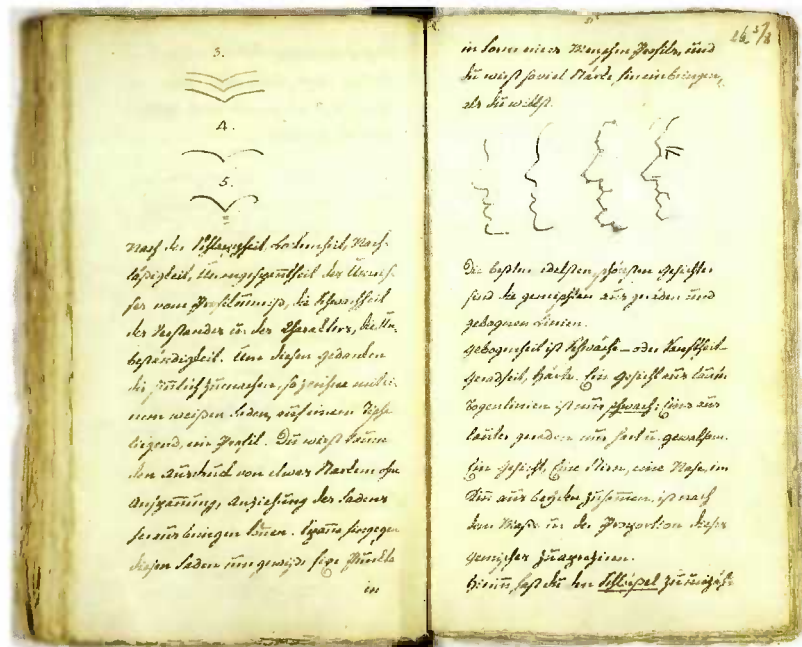 3.
4.
5.
Nach der Schlaffheit, Lockerheit, Nach-
läßigkeit, Unangespanntheit der Umriß-
ses vom Profilumriß, die Schwachheit
des Verstandes u: des Charakters, die Un-
beständigkeit. Um diesen Gedanken
dir sinnlich zu machen, so zeichne mit ei-
nem weißen Faden, auf einem Tische
liegend, ein Profil. Du wirst kaum
den Ausdruck von etwas Starkem ohne
Anspannung, Anziehung des Fadens
herausbringen können. Spanne hingegen
diesen Faden um gewiße fixe Punkte
in
in Form eines Menschen Profils, und
du wirst soviel Stärke hineinbringen,
als du willst.
Die besten edelsten, schönsten Gesichter
sind die gemischten aus geraden und
gebognen Linien.
Gebogenheit ist Schwäche – oder Sanftheit –
Geradheit, Härte. Ein Gesicht aus lauter
Bogenlinien ist nur schwach; Eins aus
lauter geraden nur hart u: gewaltsam.
Ein Gesicht, Eine Stirn, eine Nase, ein
Kinn aus beyden zusammen, ist nach
dem Maße u: der Proportion dieser
Hierinn hast du den Schlüßel zu unzäh-